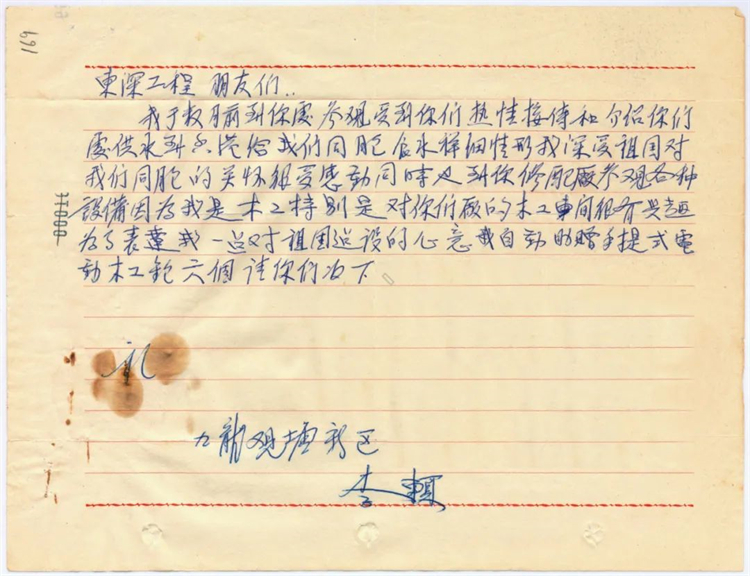 169
東深工程 朋友们..
我于数月前到你處参观受到你们热性接待和介绍你们
處供水到香港给我们同胞食水样细情形我深受祖国对
我们同胞的关怀很受感动同時也到你修配廠参观各种
設備因為我是木工特別是对你们廠的木工車间很有兴趣
為了表達我一点对祖国建設的心意我自动助赠手提式電
動木工鉋六個请你们收下
礼
九龍观塘新区
李